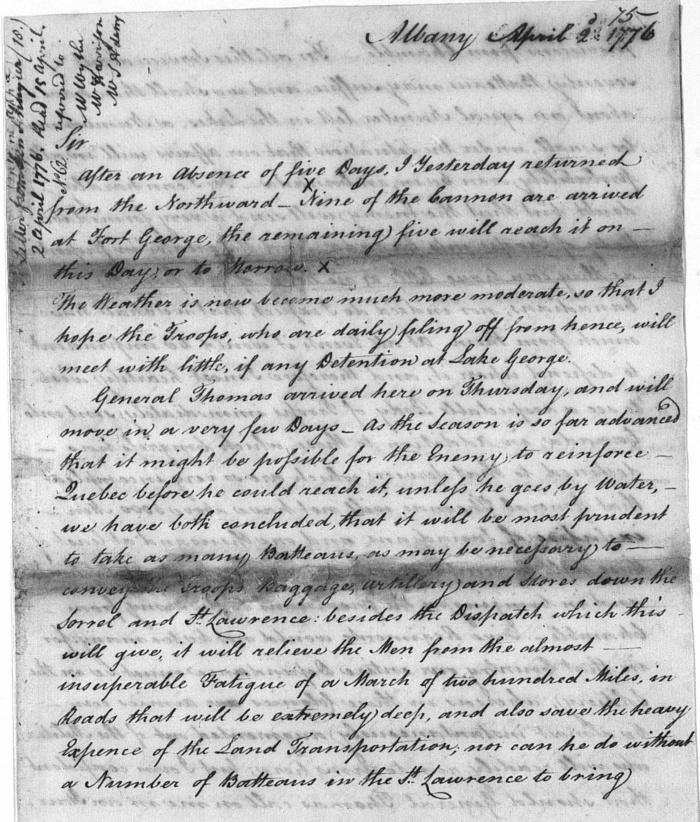 75
Albany April 2d 1776
Letter from Gen Schuyler
2 April 1776. Recd 15 April.
referred to
Mr Wythe
Mr Harrison
Sir
After an Absence of five Days, I Yesterday returned
from the Northward – X Nine of the Cannon are arrived
at Fort George, the remaining five will reach it on —
this Day, or to Morrow. X
The Weather is now become much more moderate, so that I
hope the Troops, who are daily filing off from hence, will
meet with little, if any Detention at Lake George.
General Thomas arrived here on Thursday, and will
move in a very few Days – As the Season is so far advanced
that it might be possible for the Enemy, to reinforce —
Quebec before he could reach it, unless he goes by Water, —
we have both concluded, that it will be most prudent
to take as many Batteaus, as may be necessary to —
convey the Troops Baggage, Artillery and Stores down the
Sorrel and St. Lawrence: besides the Dispatch which this
will give, it will relieve the Men from the almost —
insuperable Fatigue of a March of two hundred Miles, in
Roads that will be extremely deep, and also save the heavy
Expence of the Land Transportation; nor can he do without
a Number of Batteaus in the St. Lawrence to bring